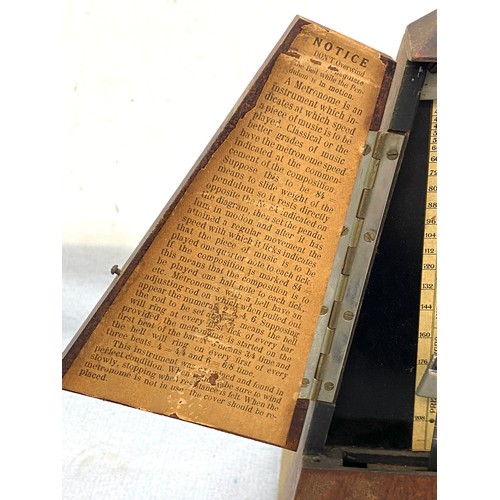 NOTICE
DON'T Overwind
the Bell while the Pen-
dulum is in motion.
A Metronome is an
Instrument which in-
dicates at which speed
a piece of music is to be
played. Classical or the
better grades of music
have the metronome speed
indicated at the commen-
cement of the composition.
Suppose this to be 84
means to slide weight of the
pendulum so it rests directly
opposite the 84 indicated on
the diagram, then set the pendu-
lum in motion and after it has
attained a regular movement the
speed with which it ticks indicates
that the piece of music is to be
played one quarter note to each tick.
If the composition is marked 84
this means the composition is to
be played one half note to each tick,
etc. Metronomes with a bell have an
adjusting rod on side which pulled out
appear the numerals 2 Supposing
the rod to be set at 2, means the bell
will ring at every second beat of every
provided the metronome is started on the
first beat of the bar. 3 means 3/4 time and
the bell will ring at every first of every
three beats. 4 = 4/4 and 6 = 6/8 time.
This instrument was tested and found in
perfect condition. When be sure to wind
slowly, stopping when resistance is felt. When the
metronome is not in use, the cover should be re-
placed.
92
96
104
112
120
128
144
160
176
208